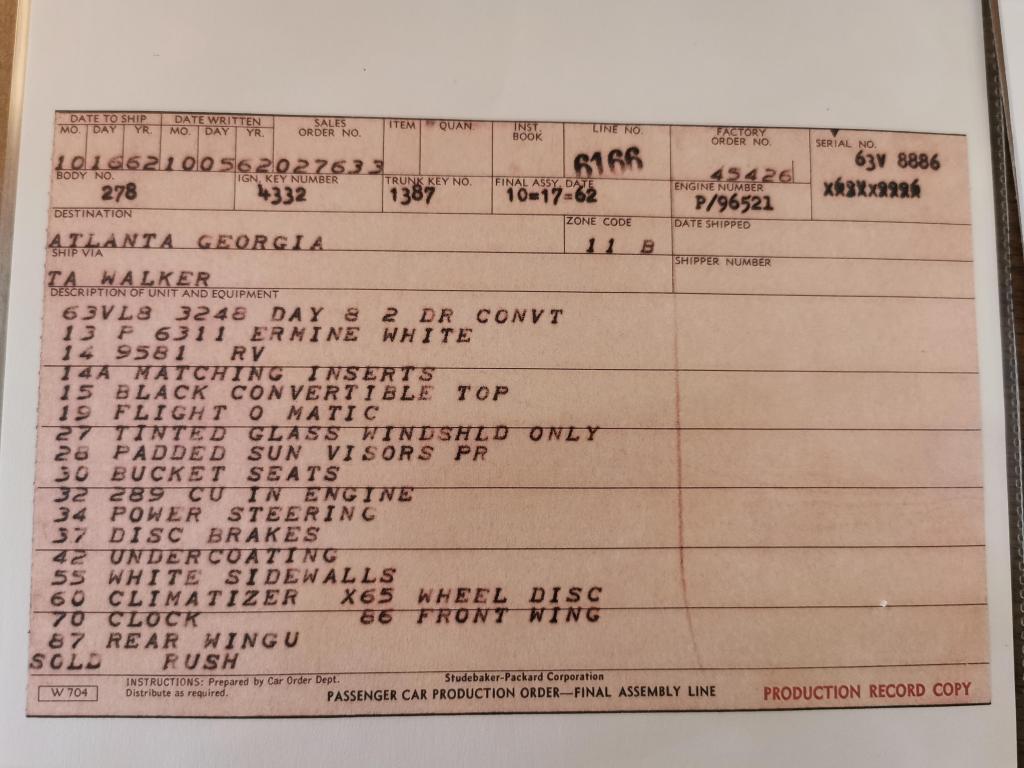 DATE TO SHIP DATE WRITTEN SALES ORDER NO. ITEM QUAN. INST. BOOK LINE NO. FACTORY ORDER NO. SERIAL NO.
MO. DAY YR. MO. DAY YR.
101662100562027633 6166 45426 63V 8886
BODY NO. IGN. KEY NUMBER TRUNK KEY NO. FINAL ASSY. DATE ENGINE NUMBER
278 4332 1387 10=17=62 P/96521
DESTINATION ZONE CODE DATE SHIPPED
ATLANTA GEORGIA 11 B
SHIP VIA SHIPPER NUMBER
TA WALKER
DESCRIPTION OF UNIT AND EQUIPMENT
63VL8 3248 DAY 8 2 DR CONVT
13 P 6311 ERMINE WHITE
14 9581 RV
14A MATCHING INSERTS
15 BLACK CONVERTIBLE TOP
19 FLIGHT O MATIC
27 TINTED GLASS WINDSHLD ONLY
28 PADDED SUN VISORS PR
30 BUCKET SEATS
32 289 CU IN ENGINE
34 POWER STEERING
37 DISC BRAKES
42 UNDERCOATING
55 WHITE SIDEWALLS
60 CLIMATIZER X65 WHEEL DISC
70 CLOCK 86 FRONT WING
87 REAR WINGU
SOLD RUSH
W 704
INSTRUCTIONS: Prepared by Car Order Dept.
Distribute as required.
Studebaker-Packard Corporation
PASSENGER CAR PRODUCTION ORDER—FINAL ASSEMBLY LINE
PRODUCTION RECORD COPY